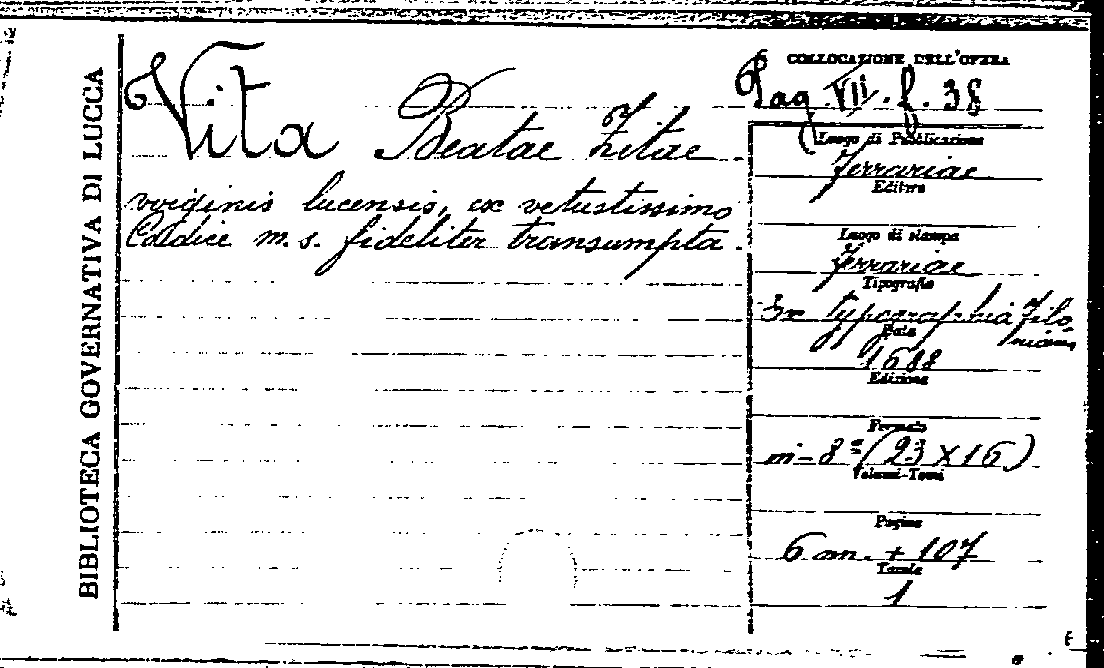 BIBLIOTECA GOVERNATIVA DI LUCCA
Vita Beatae Zitae
virginis lucensis, ex vetustissimo
Codice m.s. fideliter transumpta.
COLLOCAZIONE DELL'OPERA
VII. f. 38
Luogo di Pubblicazione
Ferrariae
Editore
Luogo di stampa
Ferrariae
Tipografia
Ex typographia Filo
niana
Data
1688
Edizione
Formato
in-8º (23 X 16)
Volumi-Tomi
Pagine
6 nn. + 107
Tavole
1